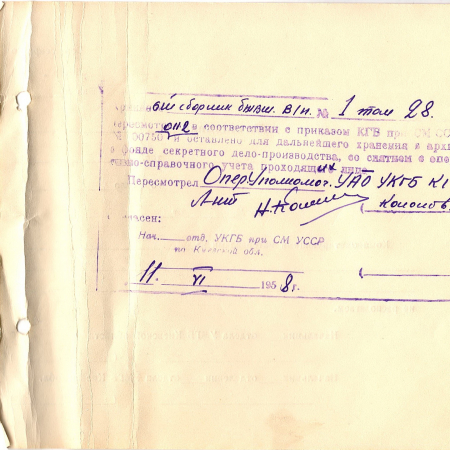 ый сборник бывш. в/п. № 1 том 28.
пересмотр в соответствии с приказом КГБ при СМ СС
№ 00750 и оставлено для дальнейшего хранения в арх
в фонде секретного дело-производства, со снятием с опе
справочного учета проходящих лиц
Пересмотрел Оперуполномоч. УАО УКГБ К
Л-нт
Нач. отд. УКГБ при СМ УССР
по Киевской обл.
11. VI 1958 г.